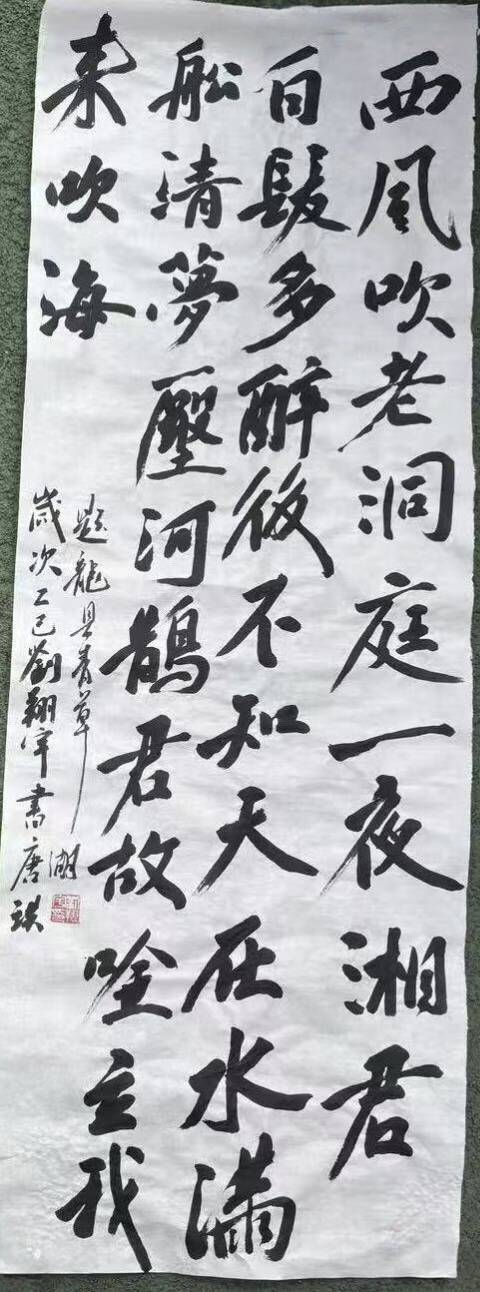 西風吹老洞庭一夜湘君
白髮多醉後不知天在水滿
船清夢壓河鵲君故立我
来吹海
題龍具青草湖
歲次乙巳劉翔宇書唐珙